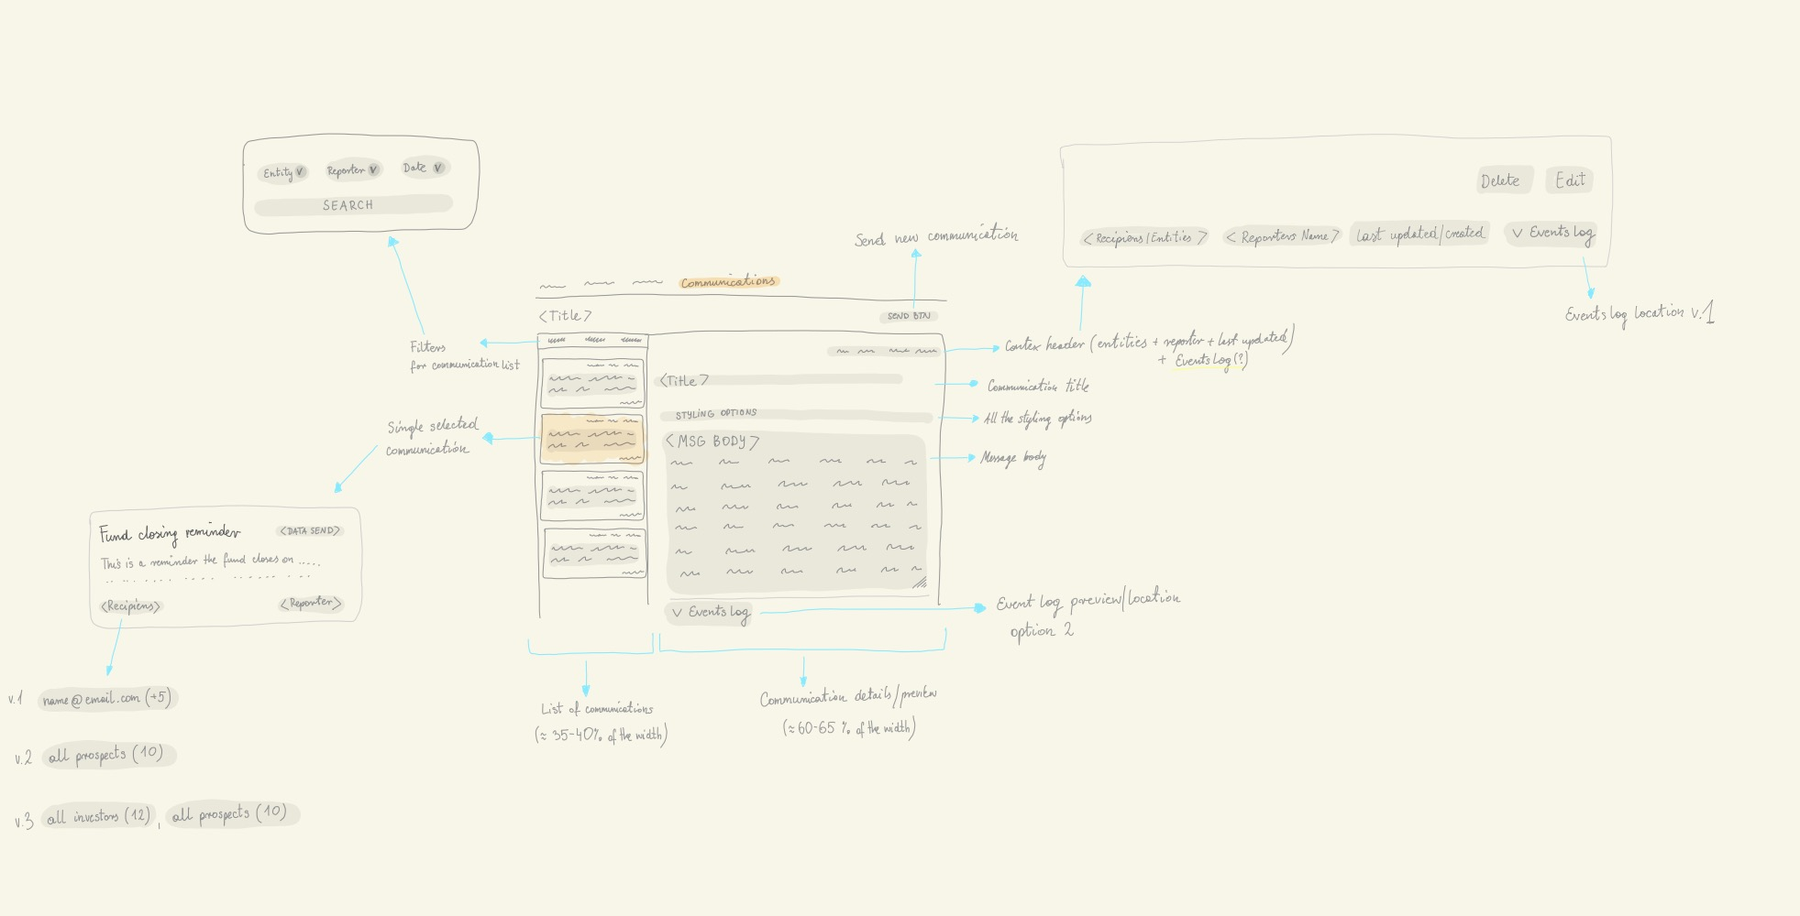 Entity v Reporter v Date v
SEARCH
Delete Edit
<Recipiens/Entities> <Reporters Name> Last updated/created v Events Log
Events log location v.1
Send new communication
Communications
<Title> SEND BTN
Filters
for communication list
Contex header (entities + reporter + last updated)
+ Events Log (?)
<Title>
Communication title
STYLING OPTIONS
All the styling options
Single selected
communication
<MSG BODY>
Message body
Fund closing reminder <DATA SEND>
This is a reminder the fund closes on .....
<Recipiens> <Reporter>
v Events Log
Event log preview/location
option 2
v.1 name@email.com (+5)
v.2 all prospects (10)
v.3 all investors (12), all prospects (10)
List of communications
(≈ 35-40% of the width)
Communication details/preview
(≈60-65 % of the width)